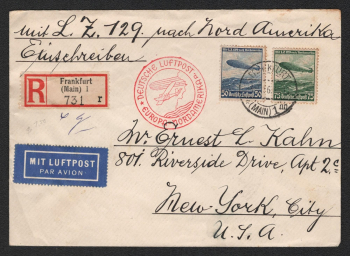 mit L. Z. 129. nach Nord Amerika
Einschreiben
R
Frankfurt
(Main) 1
731 r
DEUTSCHE LUFTPOST
EUROPA NORDAMERIKA
50 50
75 75
FRANKFURT
(MAIN) 1
MIT LUFTPOST
PAR AVION
Mr. Ernest L. Kahn
801. Riverside Drive, Apt 2c
New-York, City
U.S.A.